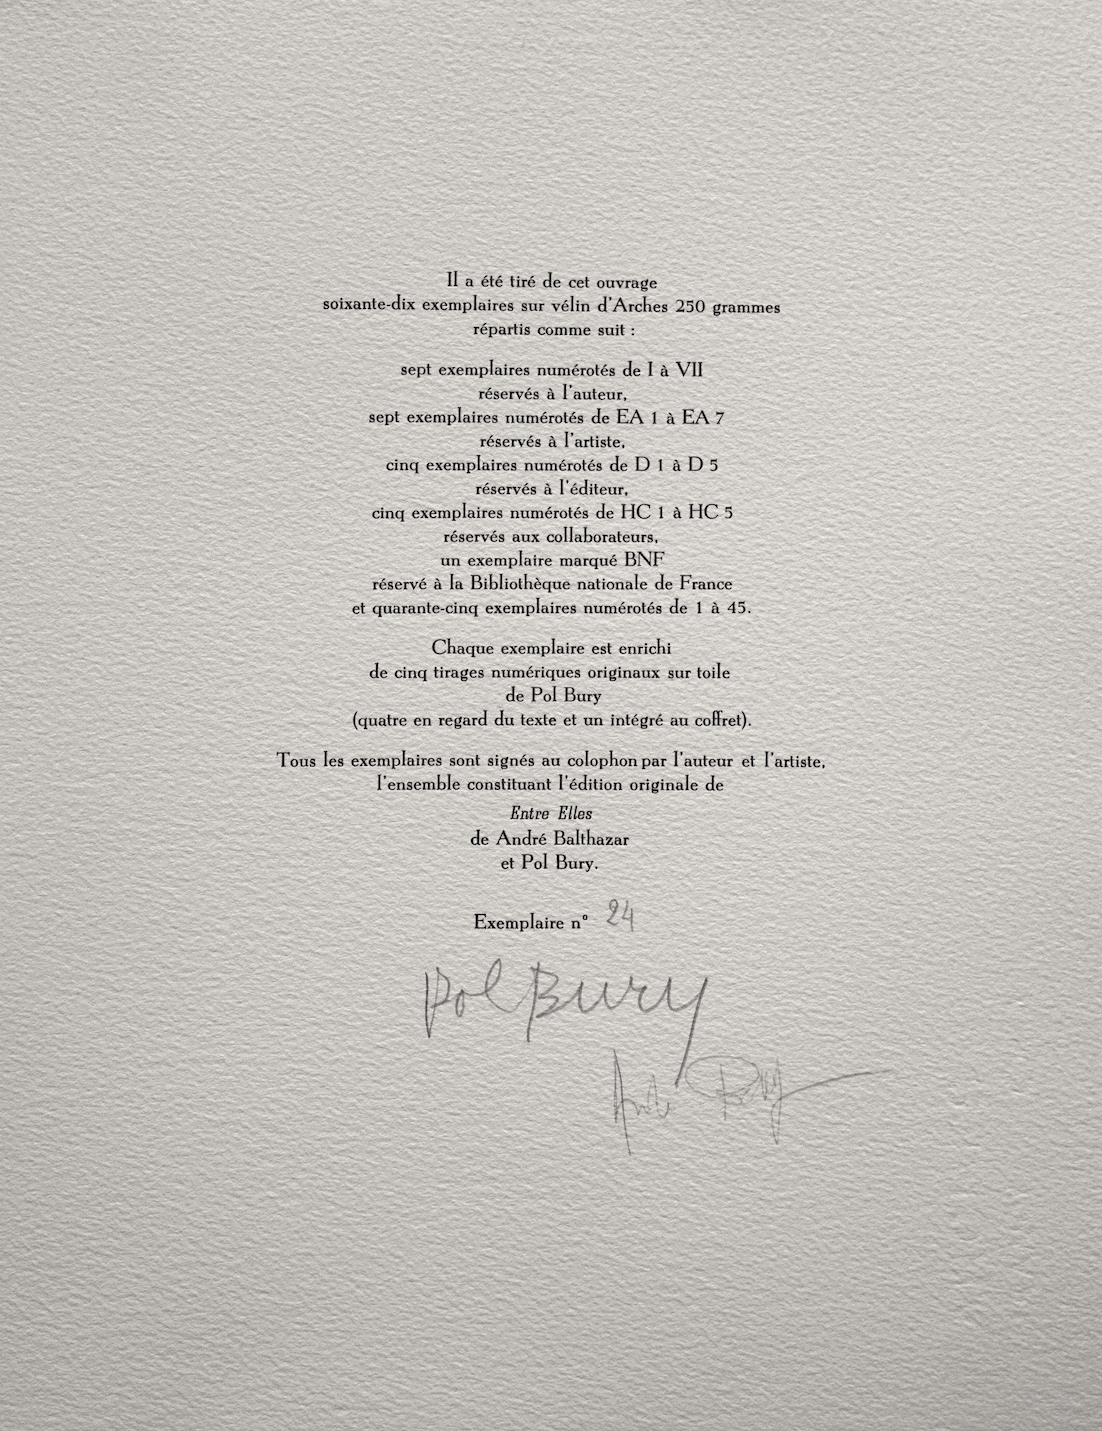 Il a été tiré de cet ouvrage
soixante-dix exemplaires sur vélin d'Arches 250 grammes
répartis comme suit :
sept exemplaires numérotés de I à VII
réservés à l'auteur,
sept exemplaires numérotés de EA 1 à EA 7
réservés à l'artiste,
cinq exemplaires numérotés de D 1 à D 5
réservés à l'éditeur,
cinq exemplaires numérotés de HC 1 à HC 5
réservés aux collaborateurs,
un exemplaire marqué BNF
réservé à la Bibliothèque nationale de France
et quarante-cinq exemplaires numérotés de 1 à 45.
Chaque exemplaire est enrichi
de cinq tirages numériques originaux sur toile
de Pol Bury
(quatre en regard du texte et un intégré au coffret).
Tous les exemplaires sont signés au colophon par l'auteur et l'artiste,
l'ensemble constituant l'édition originale de
Entre Elles
de André Balthazar
et Pol Bury.
Exemplaire n° 24
Pol Bury